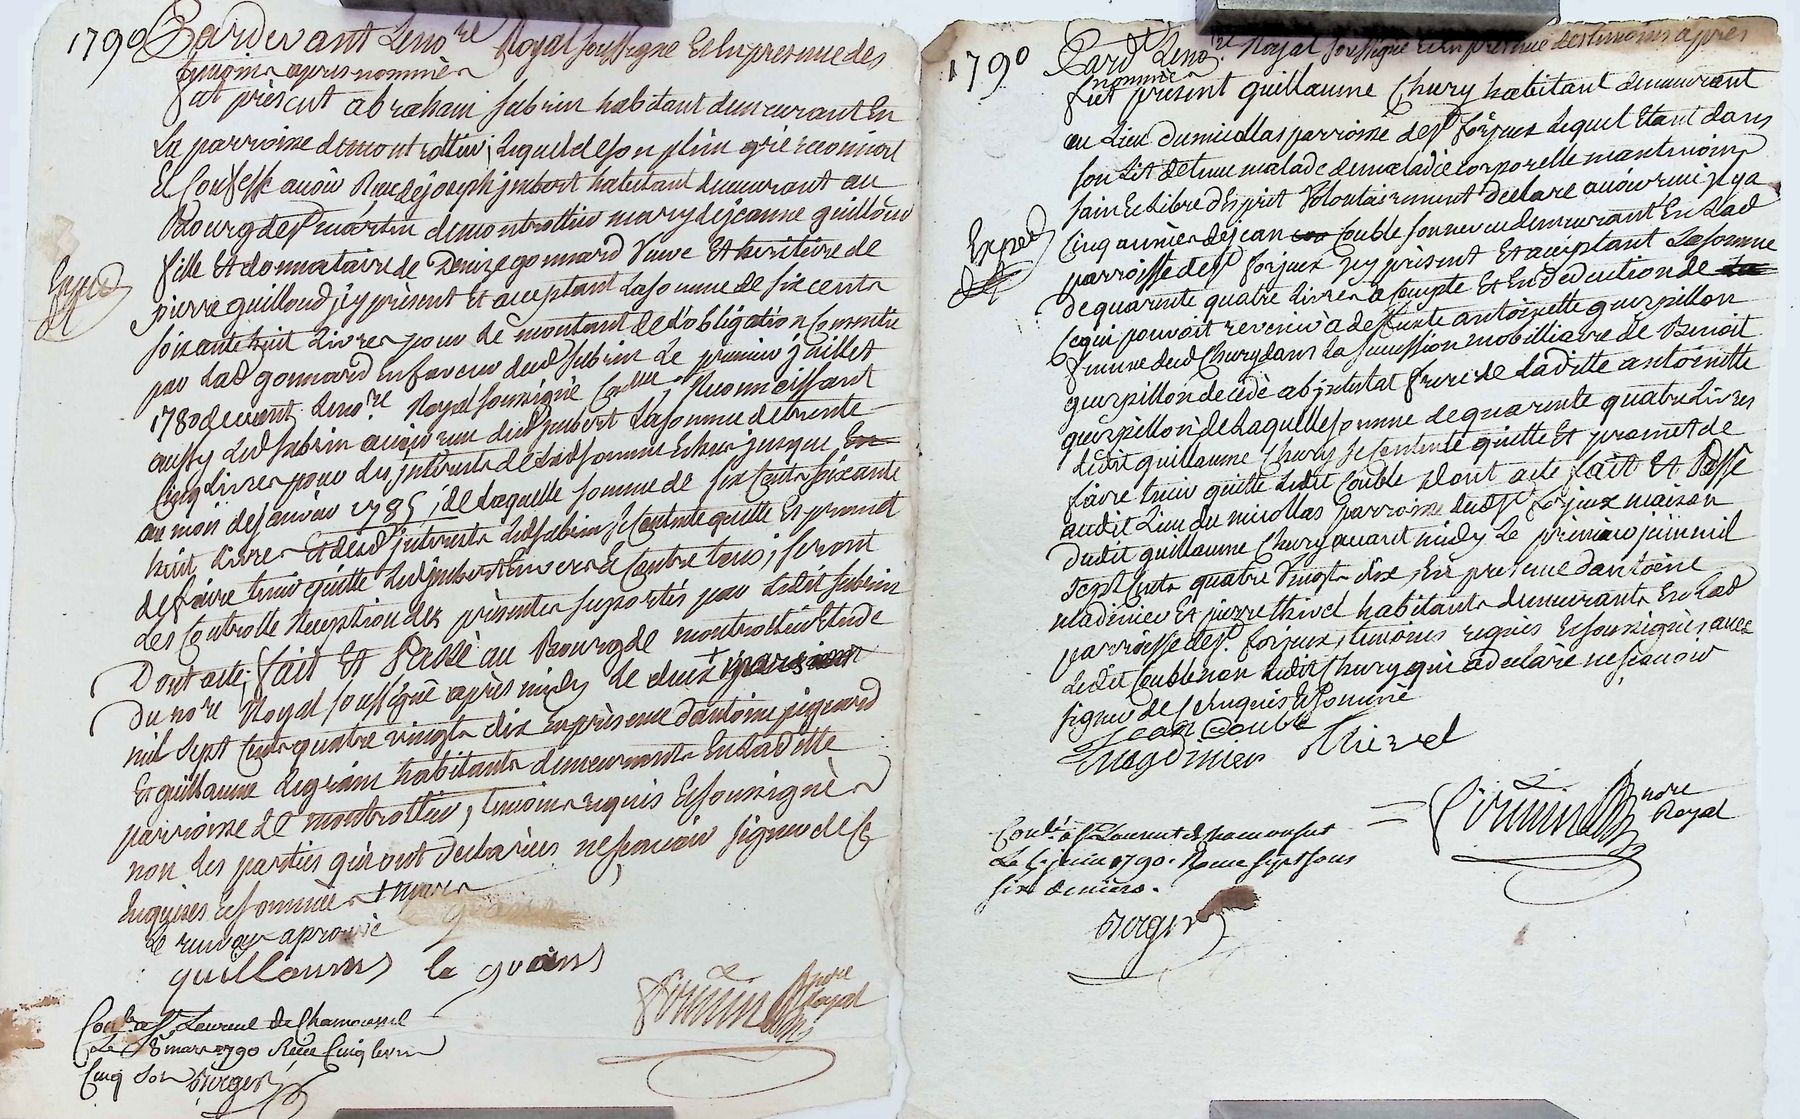 1790 Pardevant Leno.re Royal soussigne Et Enpresence des
temoins apres nommés
fut présent abraham subrin habitant demeurant En
La parroisse demontrottier; Lequel deson plein gré reconnoit
Et Confesse avoir Recu dejoseph jmbert habitant demeurant au
Bourg de st martin demontrottier mary dejeanne guilloud
fille Et donnataire de Denize gonnard Veuve Et heritiere de
pierre guilloud jcy présent Et acceptant Lasomme de six cents
soixante huit Livres pour le montant de l'obligation Consentie
par Lad gonnard enfaveur dud subrin Le premier juillet
1780 devant Leno.re Royal soussigné Reconnoissant
aussy Led subrin avoir recu dud jmbert Lasomme de trente
Cinq Livres pour des jnterets de lad somme Echus jusque
au mois de janvier 1785, de laquelle somme de six Cents soixante
huit Livres Et desd jnterets Led subrin se Contente quitte Et promet
defaire tenir quitte Led jmbert Envers Et Contre tous; seront
les Controlle Reception des presentes suportés par Ledit subrin
Dont acte; fait Et Passé au Bourg de montrottier Etude
du no.re Royal soussigné après midy Le deux +
mil sept Cents quatre vingts dix en présence d'antoine pignard
Et guillaume Legrain habitants demeurants En Laditte
parroisse de montrottier, temoins requis Et soussignés
non les parties qui ont declarées nesçavoir signer de Ce
Enquises Et sommées + mars
Le renvoy aprouvé
guillaume le grains
Firmin no.re Royal
Con.lé a st Laurent de Chamousset
Le 8 mars 1790 Recu Cinq livres
Cinq sols Berger
Exped
1790 Pard.t Leno.re Royal soussigné Et En presence des temoins apres
nommés
fut présent guillaume Chury habitant demeurant
au Lieu du micollas parroisse de st forjeux Lequel Etant dans
son Lit detenu malade de maladie corporelle neantmoins
sain Et Libre d'Esprit Volontairement declare avoir recu jl y a
Cinq années dejean Couble son neveu demeurant En Lad
parroisse de st forjeux jcy présent Et acceptant Lasomme
de quarente quatre Livres a Compte Et En Deduction de
Cequi pouvoit revenir a deffunte antoinette guerpillon
femme dud Chury dans la succession mobilliaire de Benoit
guerpillon decedé abjntestat frere de Laditte antoinette
guerpillon de Laquelle somme de quarente quatre Livres
Ledit guillaume Chury se Contente quitte Et promet de
faire tenir quitte Ledit Couble Dont acte fait Et Passé
audit Lieu du micollas parroisse dud st forjeux maison
dudit guillaume Chury avant midy Le premier juin mil
sept Cents quatre Vingts dix, En presence d'antoine
madinier Et pierre thivel habitants demeurants En Lad
parroisse de st forjeux, temoins requis Et soussignés avec
Ledit Couble non Ledit Chury qui a declaré nesçavoir
signer de Ce Enquis Et sommé
Jean Couble
Magdinier Thivel
Firmin no.re Royal
Con.lé a st Laurent de chamousset
Le 6 juin 1790. Recu sept sous
six deniers.
Berger
Exped